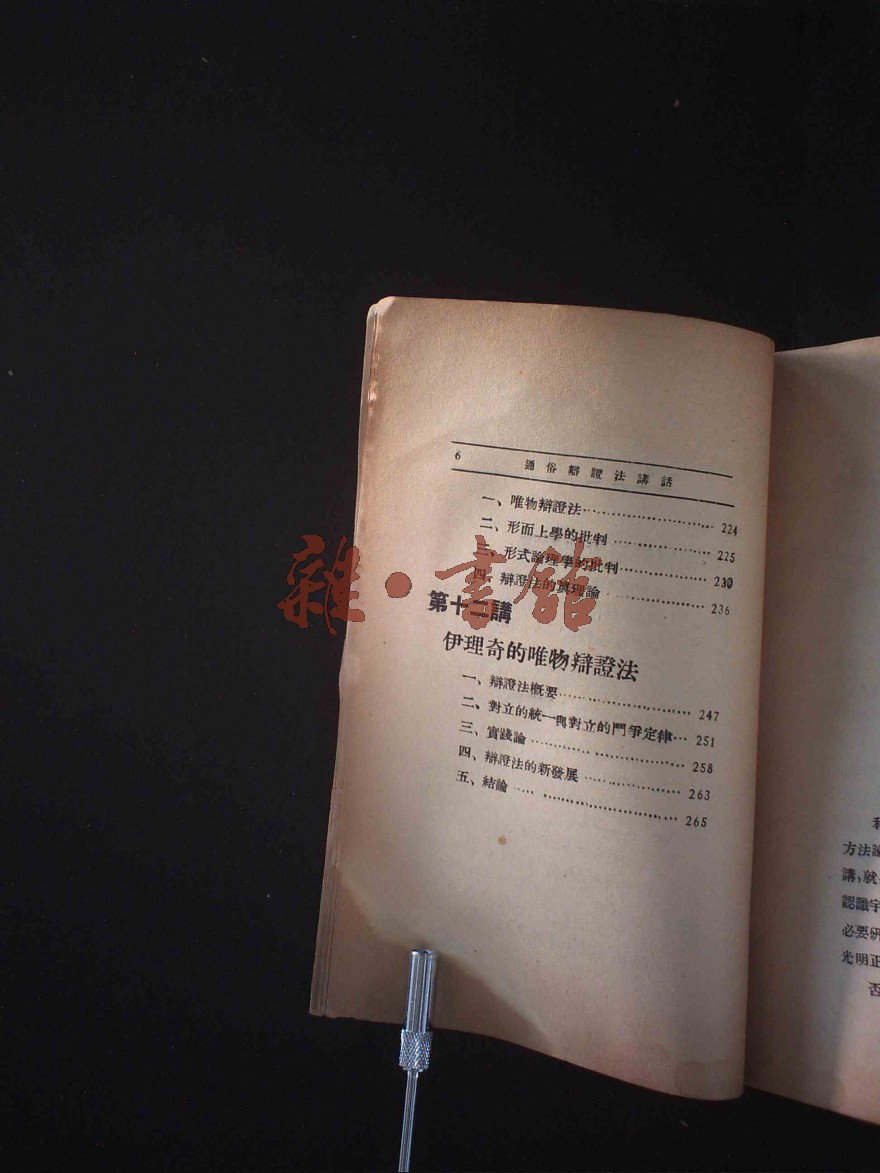 6 通俗辯證法講話
一、唯物辯證法 224
二、形而上學的批判 225
三、形式論理學的批判 230
四、辯證法的眞理論 236
第十二講
伊理奇的唯物辯證法
一、辯證法概要 247
二、對立的統一與對立的鬥爭定律 251
三、實踐論 258
四、辯證法的新發展 263
五、結論 265
雜·書館
方法論
講,就
認識宇
必要研
光明正
否